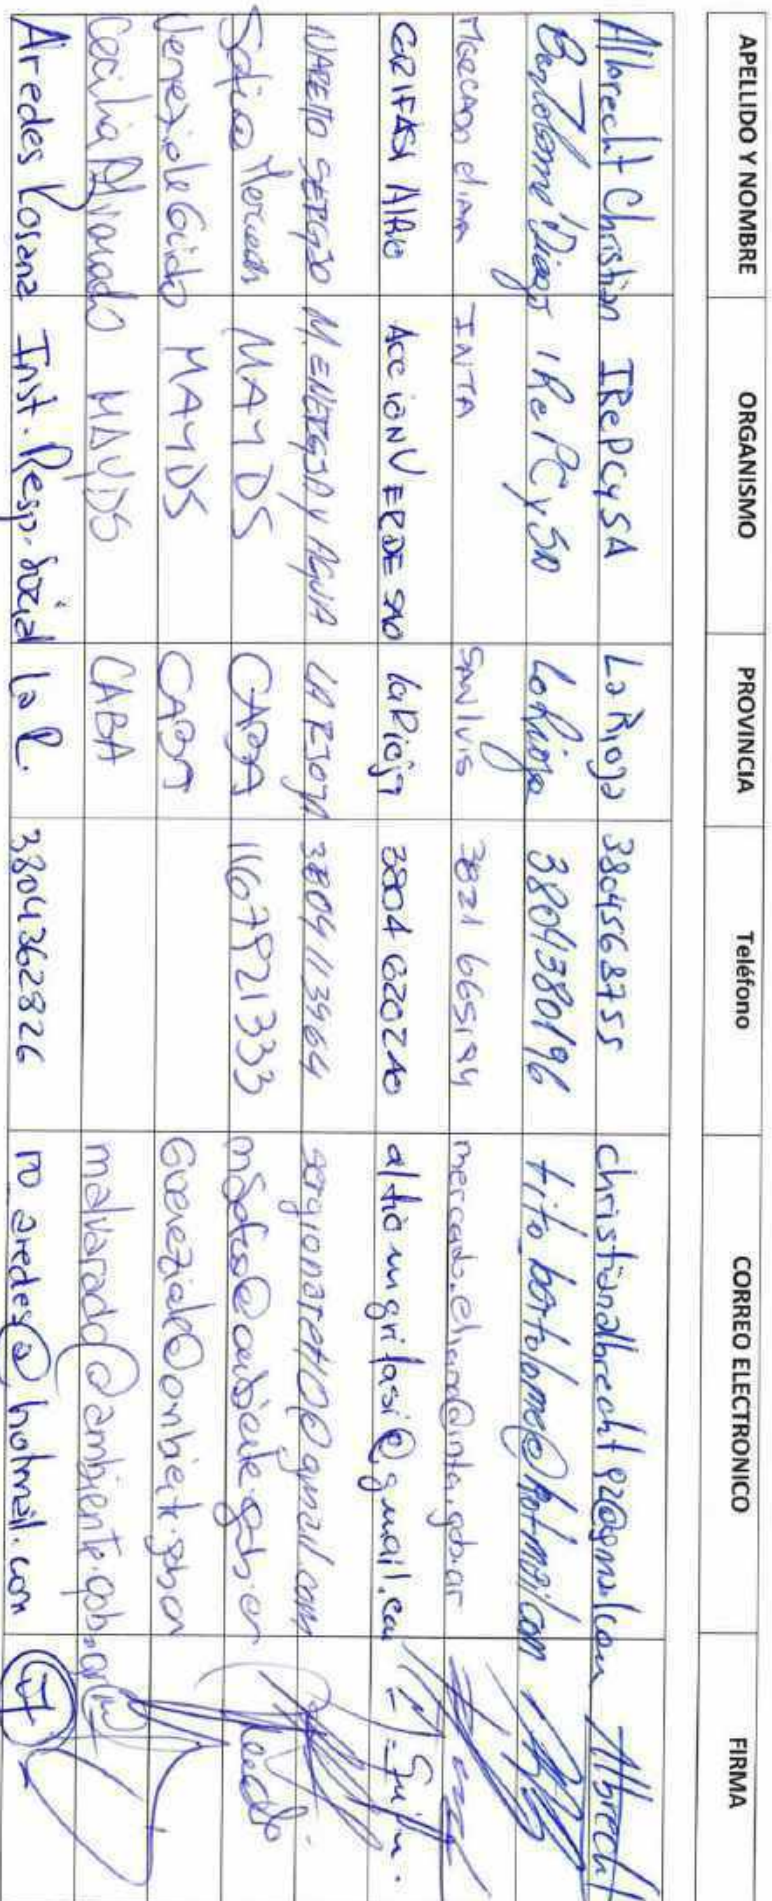 APELLIDO Y NOMBRE ORGANISMO PROVINCIA Teléfono CORREO ELECTRONICO FIRMA
Albrecht Christian IRePCySA La Rioja 3804568755 christianalbrecht92@gmail.com Albrecht
Bartolomé Diego IRePCySA La Rioja 3804380196 tito_bartolome@hotmail.com
Mercado eliana INTA SAN luis 3821 665194 mercado.eliana@inta.gob.ar
GRIFASI Altio ACCION VERDE SAO la Rioja 3804 620240 altiomgrifasi@gmail.com
NARETTO SERGIO M. ENERGIA y AGUA LA RIOJA 3804113964 sergionaretto@gmail.com
Mercedes MAYDS CABA 1167921333 @ambiente.gob.ar
Veneziale Guido MAYDS CABA Gveneziale@ambiente.gob.ar
Cecilia Alvarado MAYDS CABA malvarado@ambiente.gob.ar
Aredes Rosana Inst. Resp. Social La R. 3804362826 ro_aredes@hotmail.com